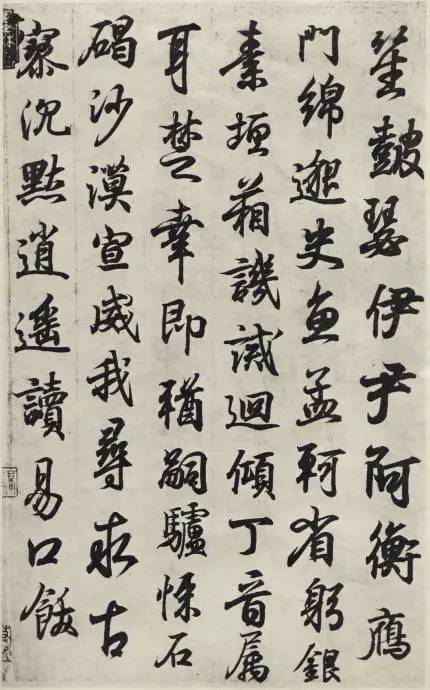 笙鼓瑟伊尹阿衡鴈
門綿邈史魚孟軻省躬銀
素垣譏誡迴傾丁音属
耳楚幸即猶嗣驢悚石
碣沙漠宣威我尋求古
寮沉點逍遥讀易口